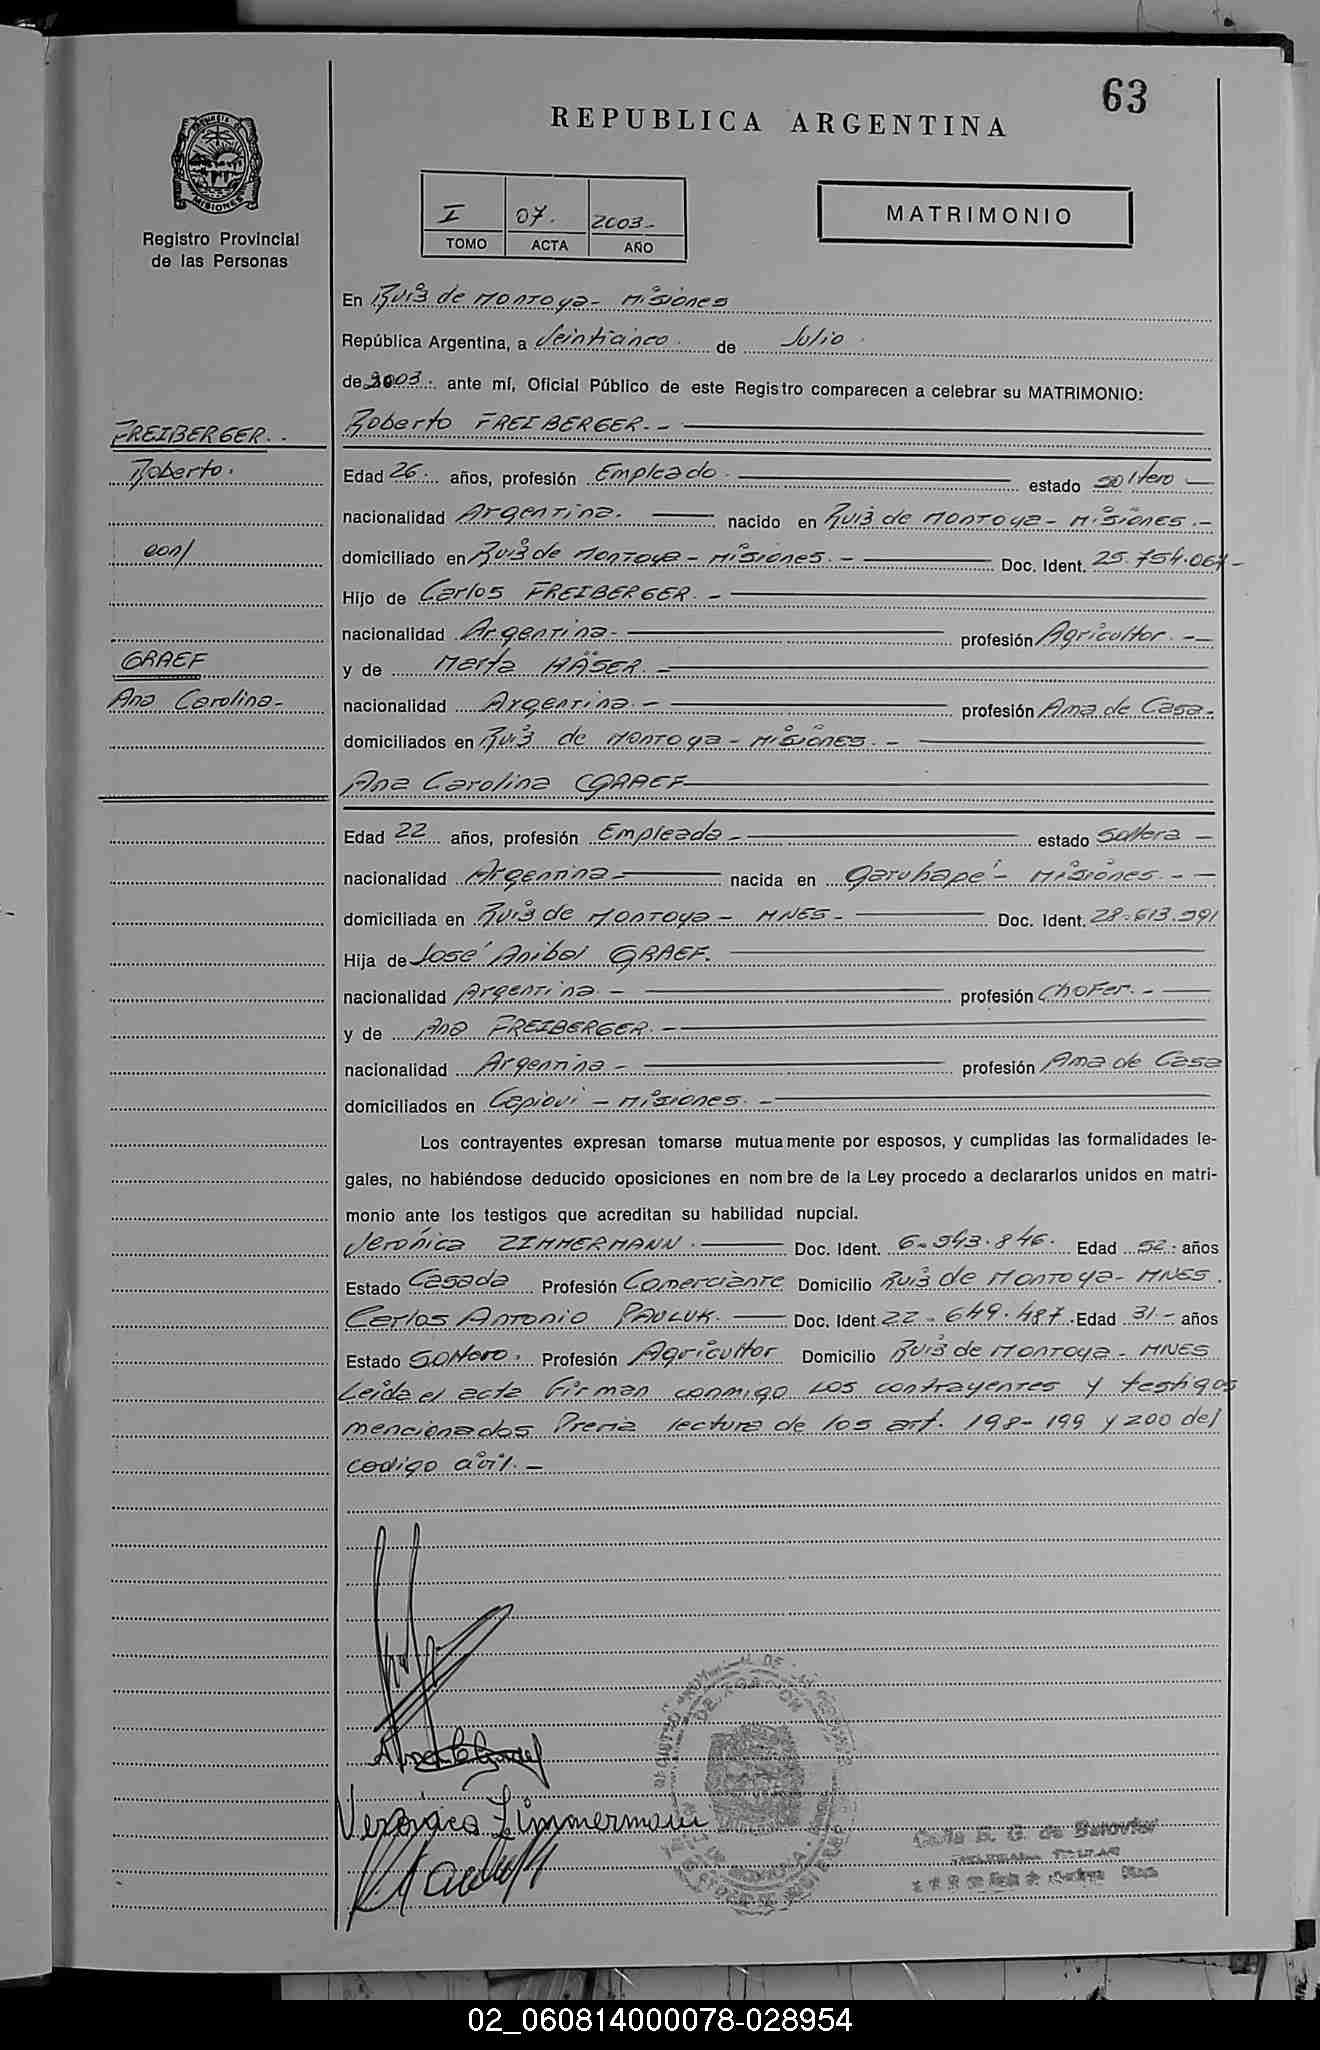 63
REPUBLICA ARGENTINA
MISIONES
Registro Provincial
de las Personas
I 07. 2003-
TOMO ACTA AÑO
MATRIMONIO
En Ruíz de Montoya - Misiones
República Argentina, a Veinticinco de Julio
de 2003. ante mí, Oficial Público de este Registro comparecen a celebrar su MATRIMONIO:
FREIBERGER.
Roberto.
con/
GRAEF
Ana Carolina-
Roberto FREIBERGER.-
Edad 26. años, profesión Empleado. estado soltero
nacionalidad Argentina. nacido en Ruíz de Montoya - Misiones.-
domiciliado en Ruíz de Montoya - Misiones.- Doc. Ident. 25.754.067-
Hijo de Carlos FREIBERGER.-
nacionalidad Argentina- profesión Agricultor.-
y de Marta HÄSER.-
nacionalidad Argentina.- profesión Ama de Casa-
domiciliados en Ruíz de Montoya - Misiones.-
Ana Carolina GRAEF
Edad 22 años, profesión Empleada- estado Soltera-
nacionalidad Argentina- nacida en Garuhapé- Misiones.-
domiciliada en Ruíz de Montoya- MNES- Doc. Ident. 28.613.991
Hija de José Anibal GRAEF.
nacionalidad Argentina.- profesión Chofer.-
y de Ana FREIBERGER.-
nacionalidad Argentina- profesión Ama de Casa
domiciliados en Capioví - Misiones.-
Los contrayentes expresan tomarse mutuamente por esposos, y cumplidas las formalidades le-
gales, no habiéndose deducido oposiciones en nombre de la Ley procedo a declararlos unidos en matri-
monio ante los testigos que acreditan su habilidad nupcial.
Verónica ZIMMERMANN. Doc. Ident. 6.943.846. Edad 52. años
Estado Casada Profesión Comerciante Domicilio Ruíz de Montoya- MNES.
Carlos Antonio PAULUK. Doc. Ident 22.649.487. Edad 31- años
Estado Soltero. Profesión Agricultor Domicilio Ruíz de Montoya- MNES
Leída el acta firman conmigo los contrayentes y testigos
mencionados Previa lectura de los art. 198- 199 y 200 del
codigo civil.-
Veronica Zimmermann
02_060814000078-028954